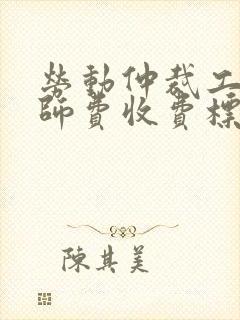 勞動仲裁工
師費收費標
陳其美